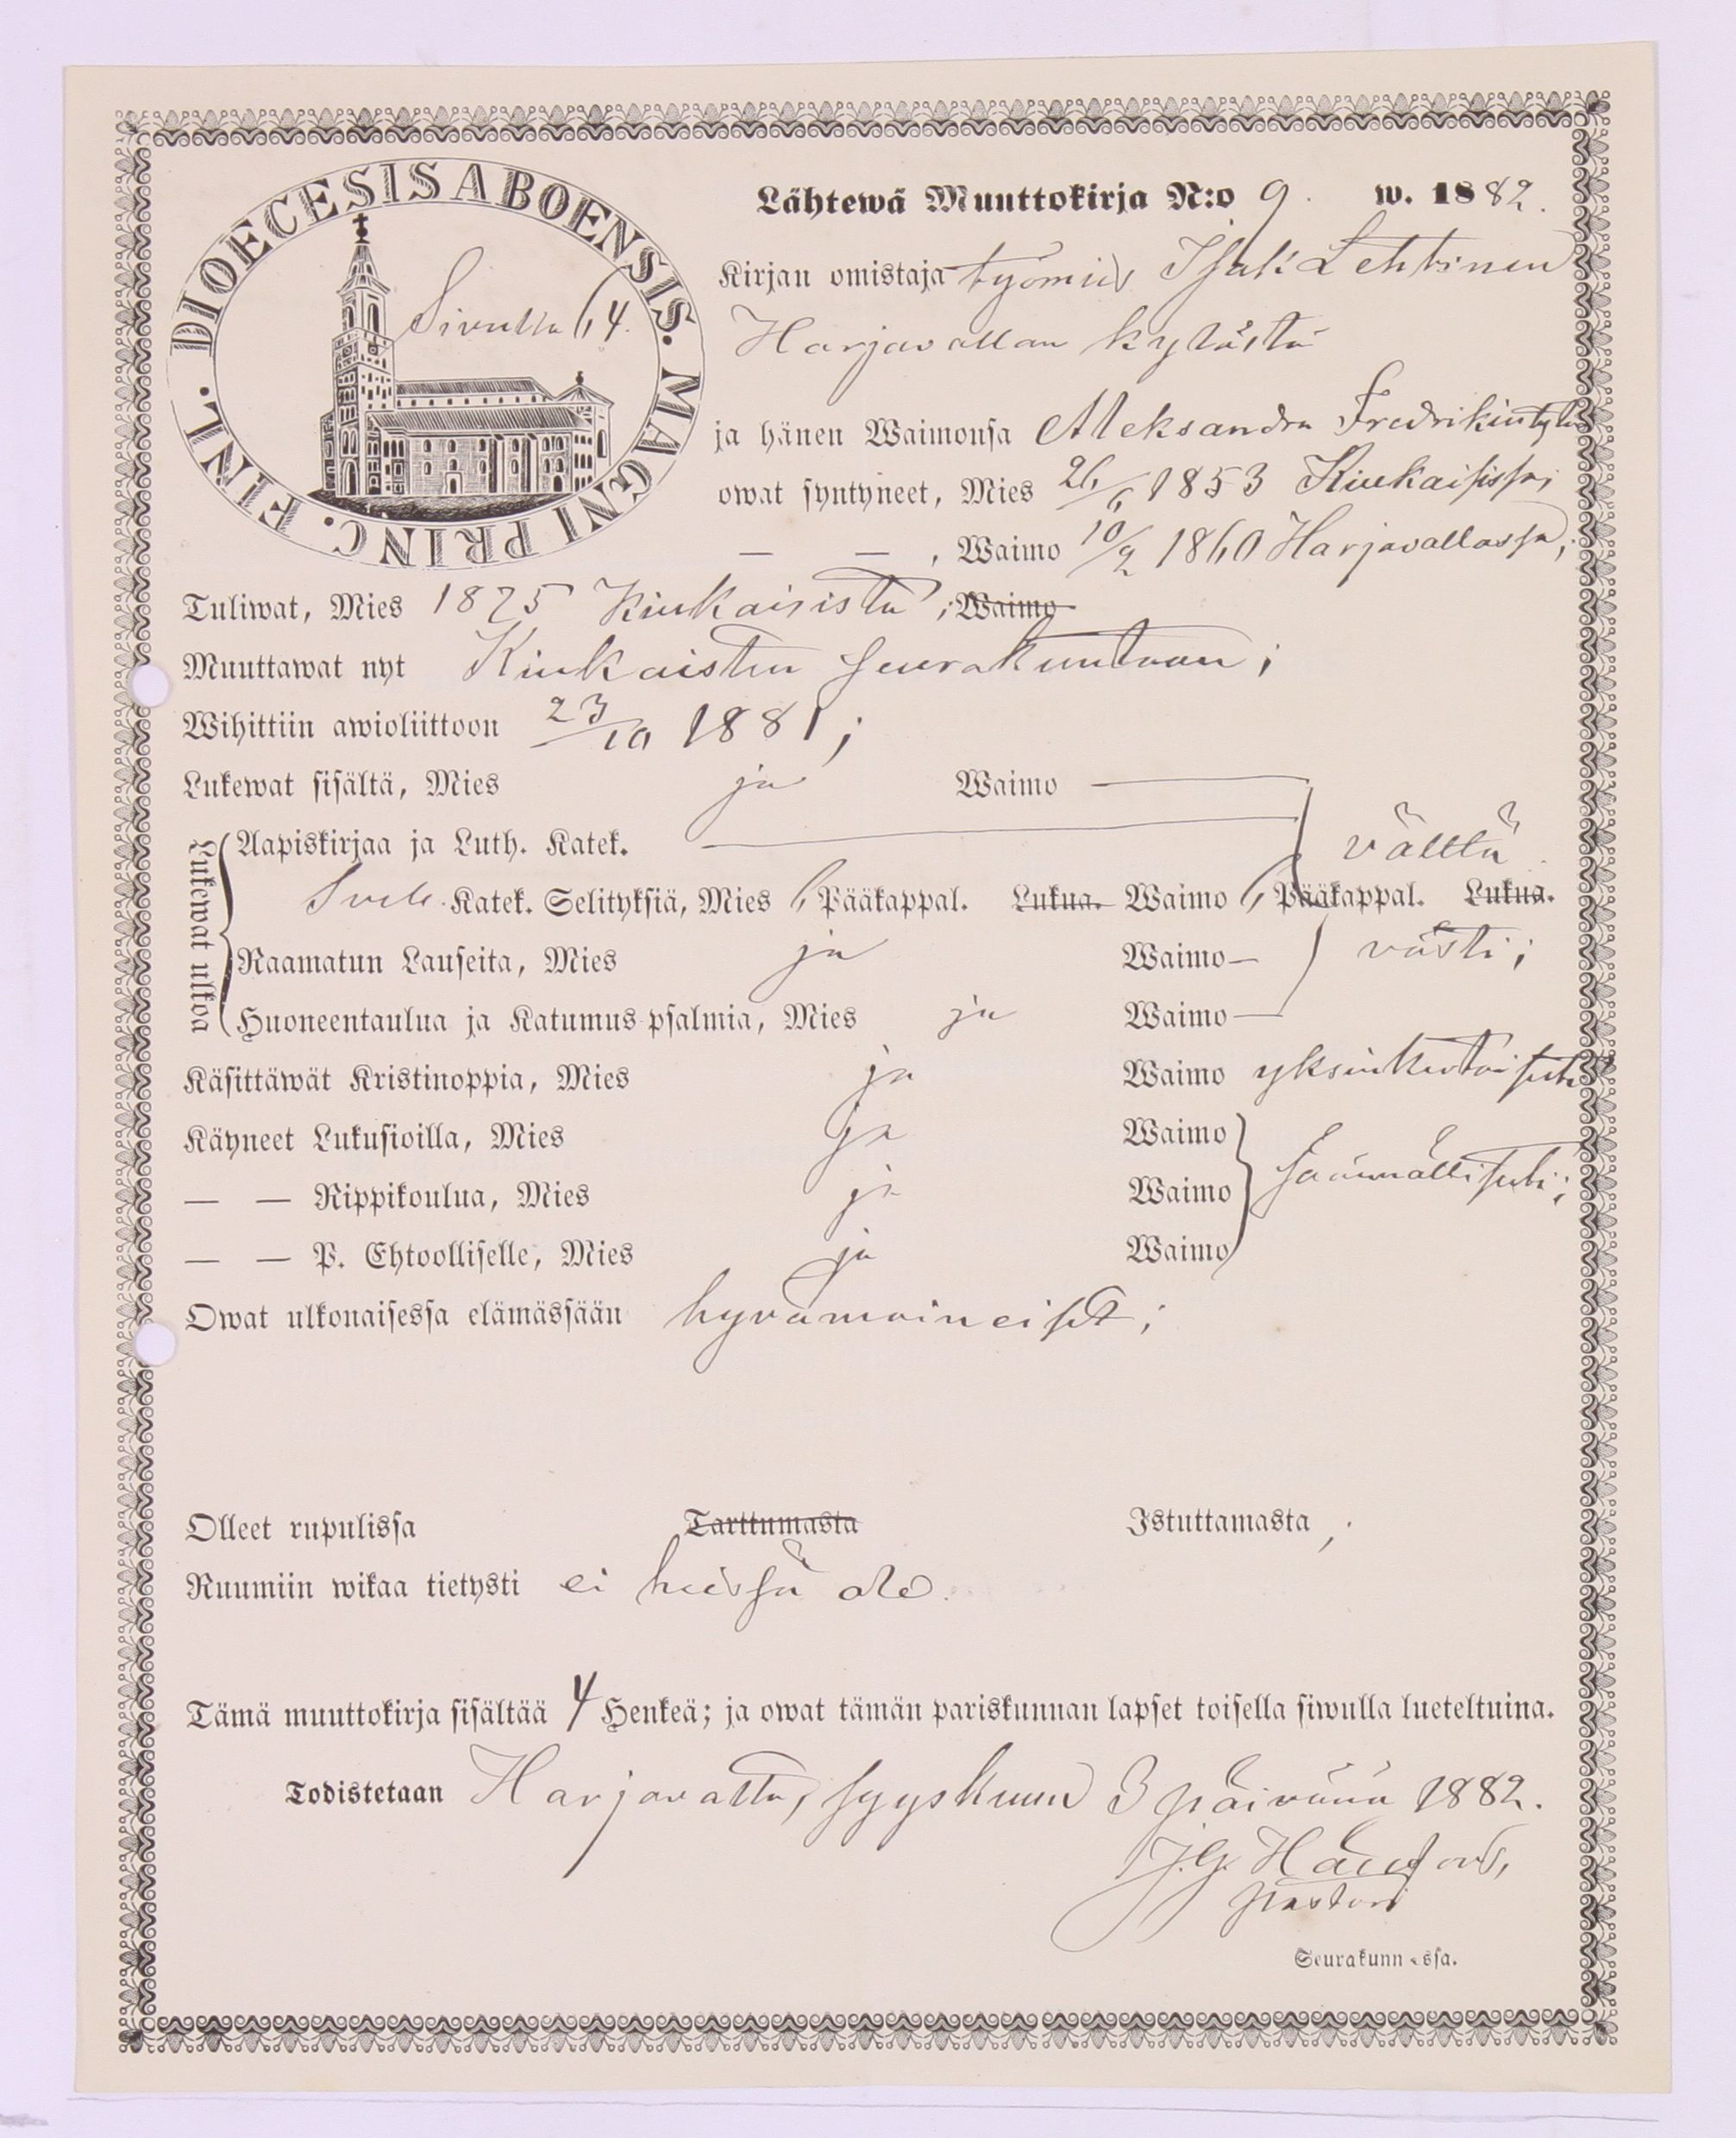 DIOECESIS ABOENSIS. MAGNI PRINC. FINL.
Sivulla 64.
Lähtewä Muuttokirja N:o 9. w. 1882.
Kirjan omistaja työmies Isak Lehtinen
Harjavallan kylästä
ja hänen Waimonsa Aleksandra Fredrikintytär
owat syntyneet, Mies 26/6 1853 Kiukaisissa;
— — , Waimo 10/2 1860 Harjavallassa;
Tuliwat, Mies 1875 Kiukaisista; Waimo
Muuttawat nyt Kiukaisten seurakuntaan;
Wihittiin awioliittoon 23/10 1881;
Lukewat sisältä, Mies ja Waimo —
Lukewat ulkoa
Aapiskirjaa ja Luth. Katek. — välttä
Sveb. Katek. Selityksiä, Mies 6 Pääkappal. Lukua. Waimo 6 Pääkappal. Lukua.
Raamatun Lauseita, Mies ja Waimo — västi;
Huoneentaulua ja Katumus-psalmia, Mies ja Waimo —
Käsittäwät Kristinoppia, Mies ja Waimo yksinkertaisesti
Käyneet Lukusioilla, Mies ja Waimo
— — Rippikoulua, Mies ja Waimo säännöllisesti;
— — P. Ehtoolliselle, Mies ja Waimo
Owat ulkonaisessa elämässään hyvämaineiset;
Olleet rupulissa Tarttumasta Istuttamasta;
Ruumiin wikaa tietysti ei heissä ole.
Tämä muuttokirja sisältää 4 Henkeä; ja owat tämän pariskunnan lapset toisella siwulla lueteltuina.
Todistetaan Harjavalta, syyskuun 3 päivänä 1882.
J. G.
pastori
Seurakunn essa.